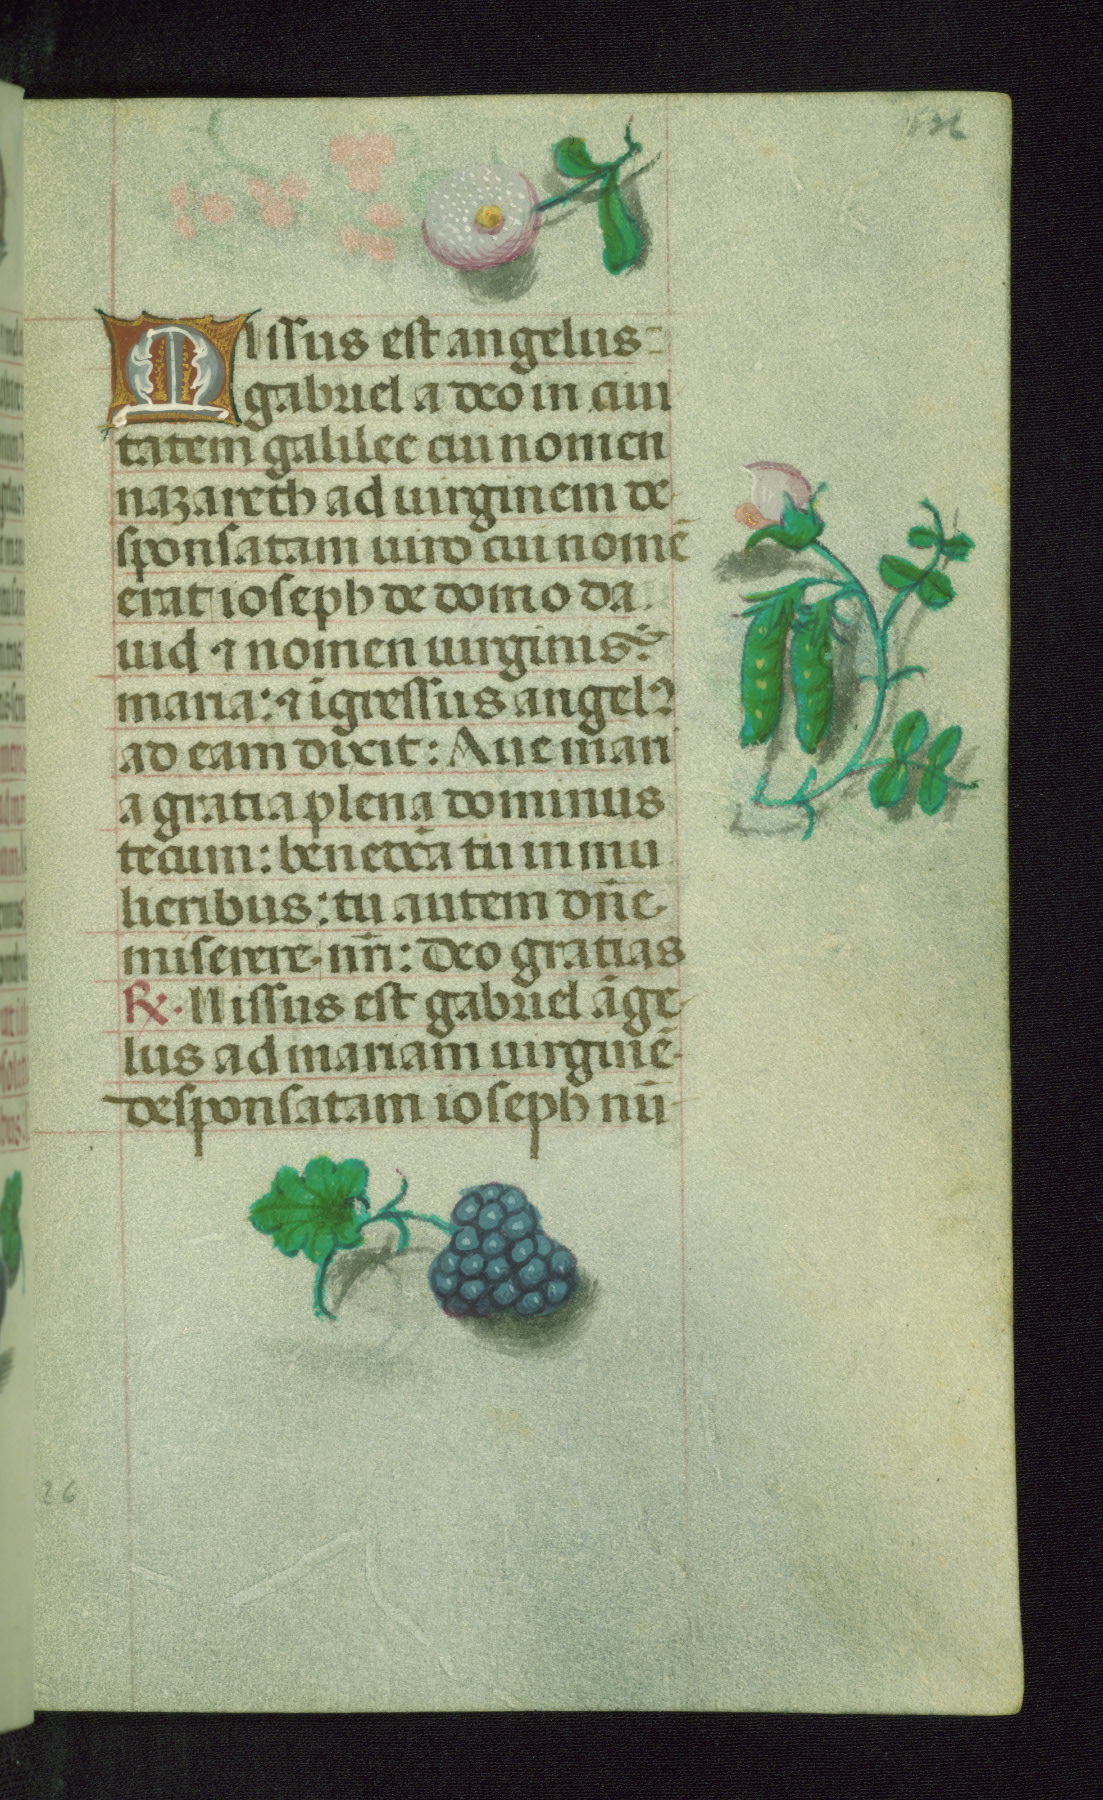 Missus est angelus
gabriel a deo in ciui
tatem galilee cui nomen
nazareth ad uirginem de
sponsatam uiro cui nomē
erat ioseph de domo da
uid ⁊ nomen uirginis
maria: ⁊ īgressus angelꝰ
ad eam dixit: Aue mari
a gratia plena dominus
tecum: benedc̄a tu in mu
lieribus: tu autem dn̄e
miserere nr̄i: Deo gratias
R̷. Missus est gabriel āge
lus ad mariam uirginē
desponsatam ioseph nū
26